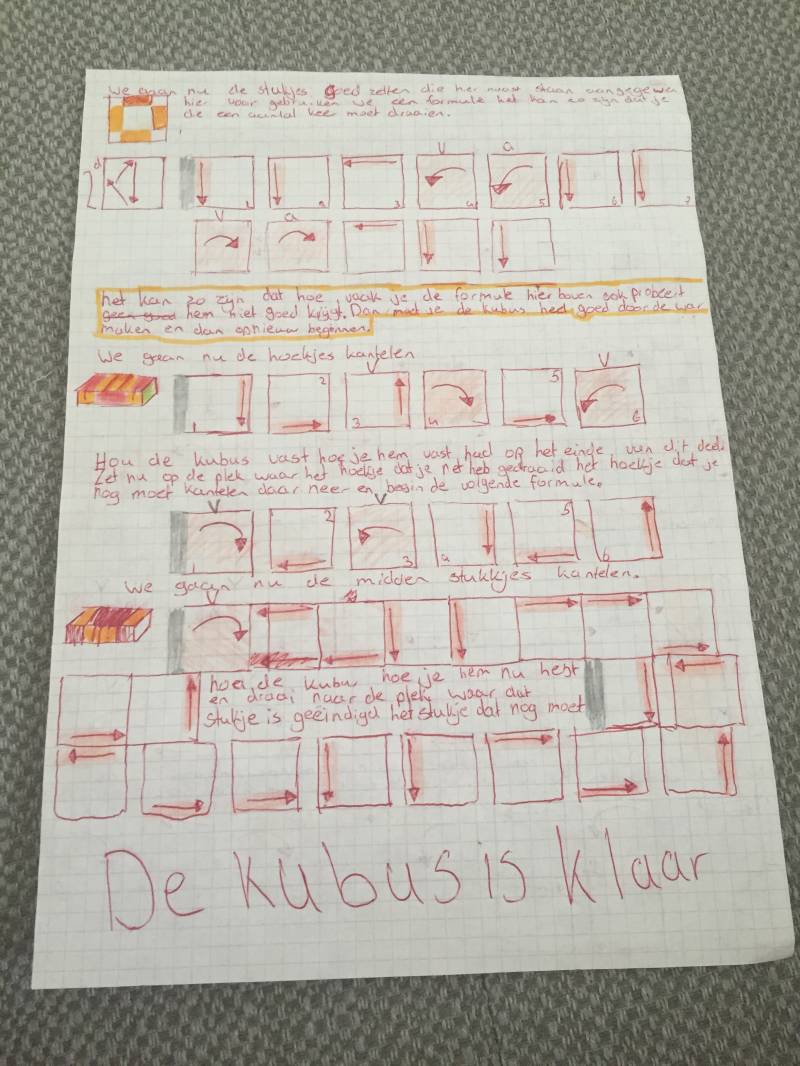 We gaan nu de stukjes goed zetten die hier naast staan aangegeven
hier voor gebruiken we een formule het kan zo zijn dat je
die een aantal keer moet draaien.
d
V a
1 2 3 4 5 6 7
V a
het kan zo zijn dat hoe vaak je de formule hier boven ook probeert
geen goed hem niet goed krijgt. Dan moet je de kubus heel goed door de war
maken en dan opnieuw beginnen.
We gaan nu de hoekjes kantelen
V V
1 2 3 4 5 6
Hou de kubus vast hoe je hem vast had op het einde van dit deel.
Zet nu op de plek waar het hoekje dat je net heb gedraaid het hoekje dat je
nog moet kantelen daar neer en begin de volgende formule.
V V
1 2 3 4 5 6
We gaan nu de midden stukkjes kantelen.
V
de kubus hoe je hem nu hebt
en draai naar de plek waar dat
stukje is geëindigd het stukje dat nog moet
De kubus is klaar